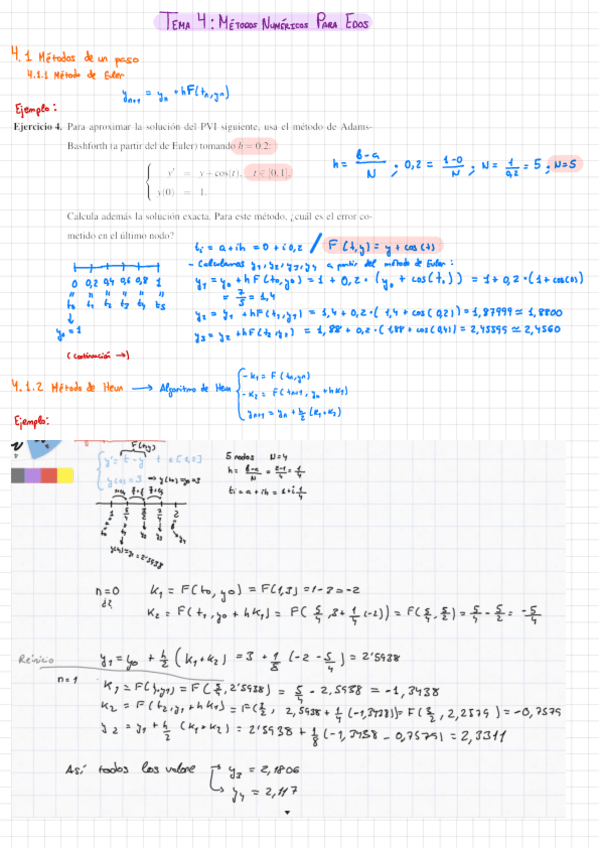 TEMA 4: MÉTODOS NUMÉRICOS PARA EDOS
4.1 Métodos de un paso
4.1.1 Método de Euler
y_{n+1} = y_n + hF(t_n, y_n)
Ejemplo:
Ejercicio 4. Para aproximar la solución del PVI siguiente, usa el método de Adams-
Bashforth (a partir del de Euler) tomando h = 0.2:
h = b-a/N ; 0,2 = 1-0/N ; N = 1/0,2 = 5 ; N=5
y' = y + cos(t), t ∈ [0, 1],
y(0) = 1.
Calcula además la solución exacta. Para este método, ¿cuál es el error co-
metido en el último nodo?
t_i = a + ih = 0 + i 0,2 / F(t,y) = y + cos(t)
- Calculamos y_1, y_2, y_3, y_4 a partir del método de Euler:
0 0,2 0,4 0,6 0,8 1
t_0 t_1 t_2 t_3 t_4 t_5
y_0 = 1
y_1 = y_0 + hF(t_0, y_0) = 1 + 0,2 · (y_0 + cos(t_0)) = 1 + 0,2 · (1 + cos(0))
= 7/5 = 1,4
y_2 = y_1 + hF(t_1, y_1) = 1,4 + 0,2 · (1,4 + cos(0,2)) = 1,87999 ≃ 1,8800
y_3 = y_2 + hF(t_2, y_2) = 1,88 + 0,2 · (1,88 + cos(0,4)) = 2,45599 ≃ 2,4560
(continuación →)
4.1.2 Método de Heun → Algoritmo de Heun
- K_1 = F(t_n, y_n)
- K_2 = F(t_{n+1}, y_n + hK_1)
y_{n+1} = y_n + h/2 (K_1 + K_2)
Ejemplo:
F(t,y)
y' = t - y t ∈ [1,2]
y(1) = 3 → y(t_0) = y_0 = 3
5 nodos N=4
h = b-a/N = 2-1/4 = 1/4
t_i = a + ih = 1 + i 1/4
1 5/4 3/2 7/4 2
y(t_1) = y_1 = 2'5938
n=0
K_1 = F(t_0, y_0) = F(1,3) = 1-3 = -2
K_2 = F(t_1, y_0 + hK_1) = F(5/4, 3 + 1/4 (-2)) = F(5/4, 5/2) = 5/4 - 5/2 = -5/4
Reinicio
y_1 = y_0 + h/2 (K_1 + K_2) = 3 + 1/8 (-2 - 5/4) = 2'5938
n=1
K_1 = F(t_1, y_1) = F(5/4, 2'5938) = 5/4 - 2,5938 = -1,3438
K_2 = F(t_2, y_1 + hK_1) = F(3/2, 2,5938 + 1/4 (-1,3438)) = F(3/2, 2,2579) = -0,7579
y_2 = y_1 + h/2 (K_1 + K_2) = 2'5938 + 1/8 (-1,3438 - 0,7579) = 2,3311
Así todos los valore
y_3 = 2,1806
y_4 = 2,117